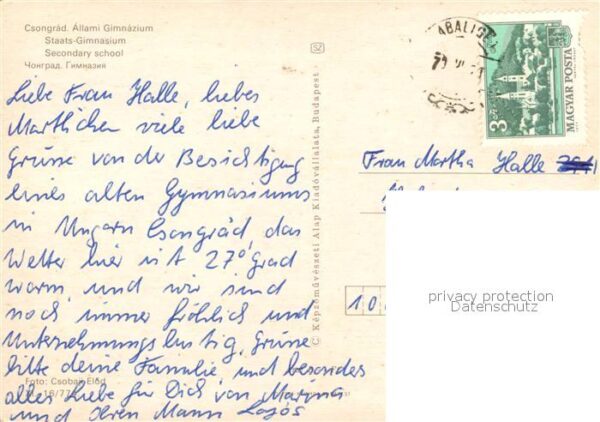 Csongrád. Állami Gimnázium
Staats-Gimnasium
Secondary school
Чонград. Гимназия
Liebe Frau Halle, liebes
Marthchen viele liebe
Grüsse von der Besichtigung
eines alten Gymnasiums
in Ungarn Csongrád, das
Wetter hier ist 27° Grad
warm und wir sind
noch immer fröhlich und
Unternehmungslustig, Grüsse
bitte deine Familie und besonders
alles Liebe für Dich von Marina
und Ihren Mann Lajos
Foto: Csobaji Előd
16/77
SZ
C Képzőművészeti Alap Kiadóvállalata, Budapest
ABALIG
3
MAGYAR POSTA
Frau Martha Halle
10
privacy protection
Datenschutz